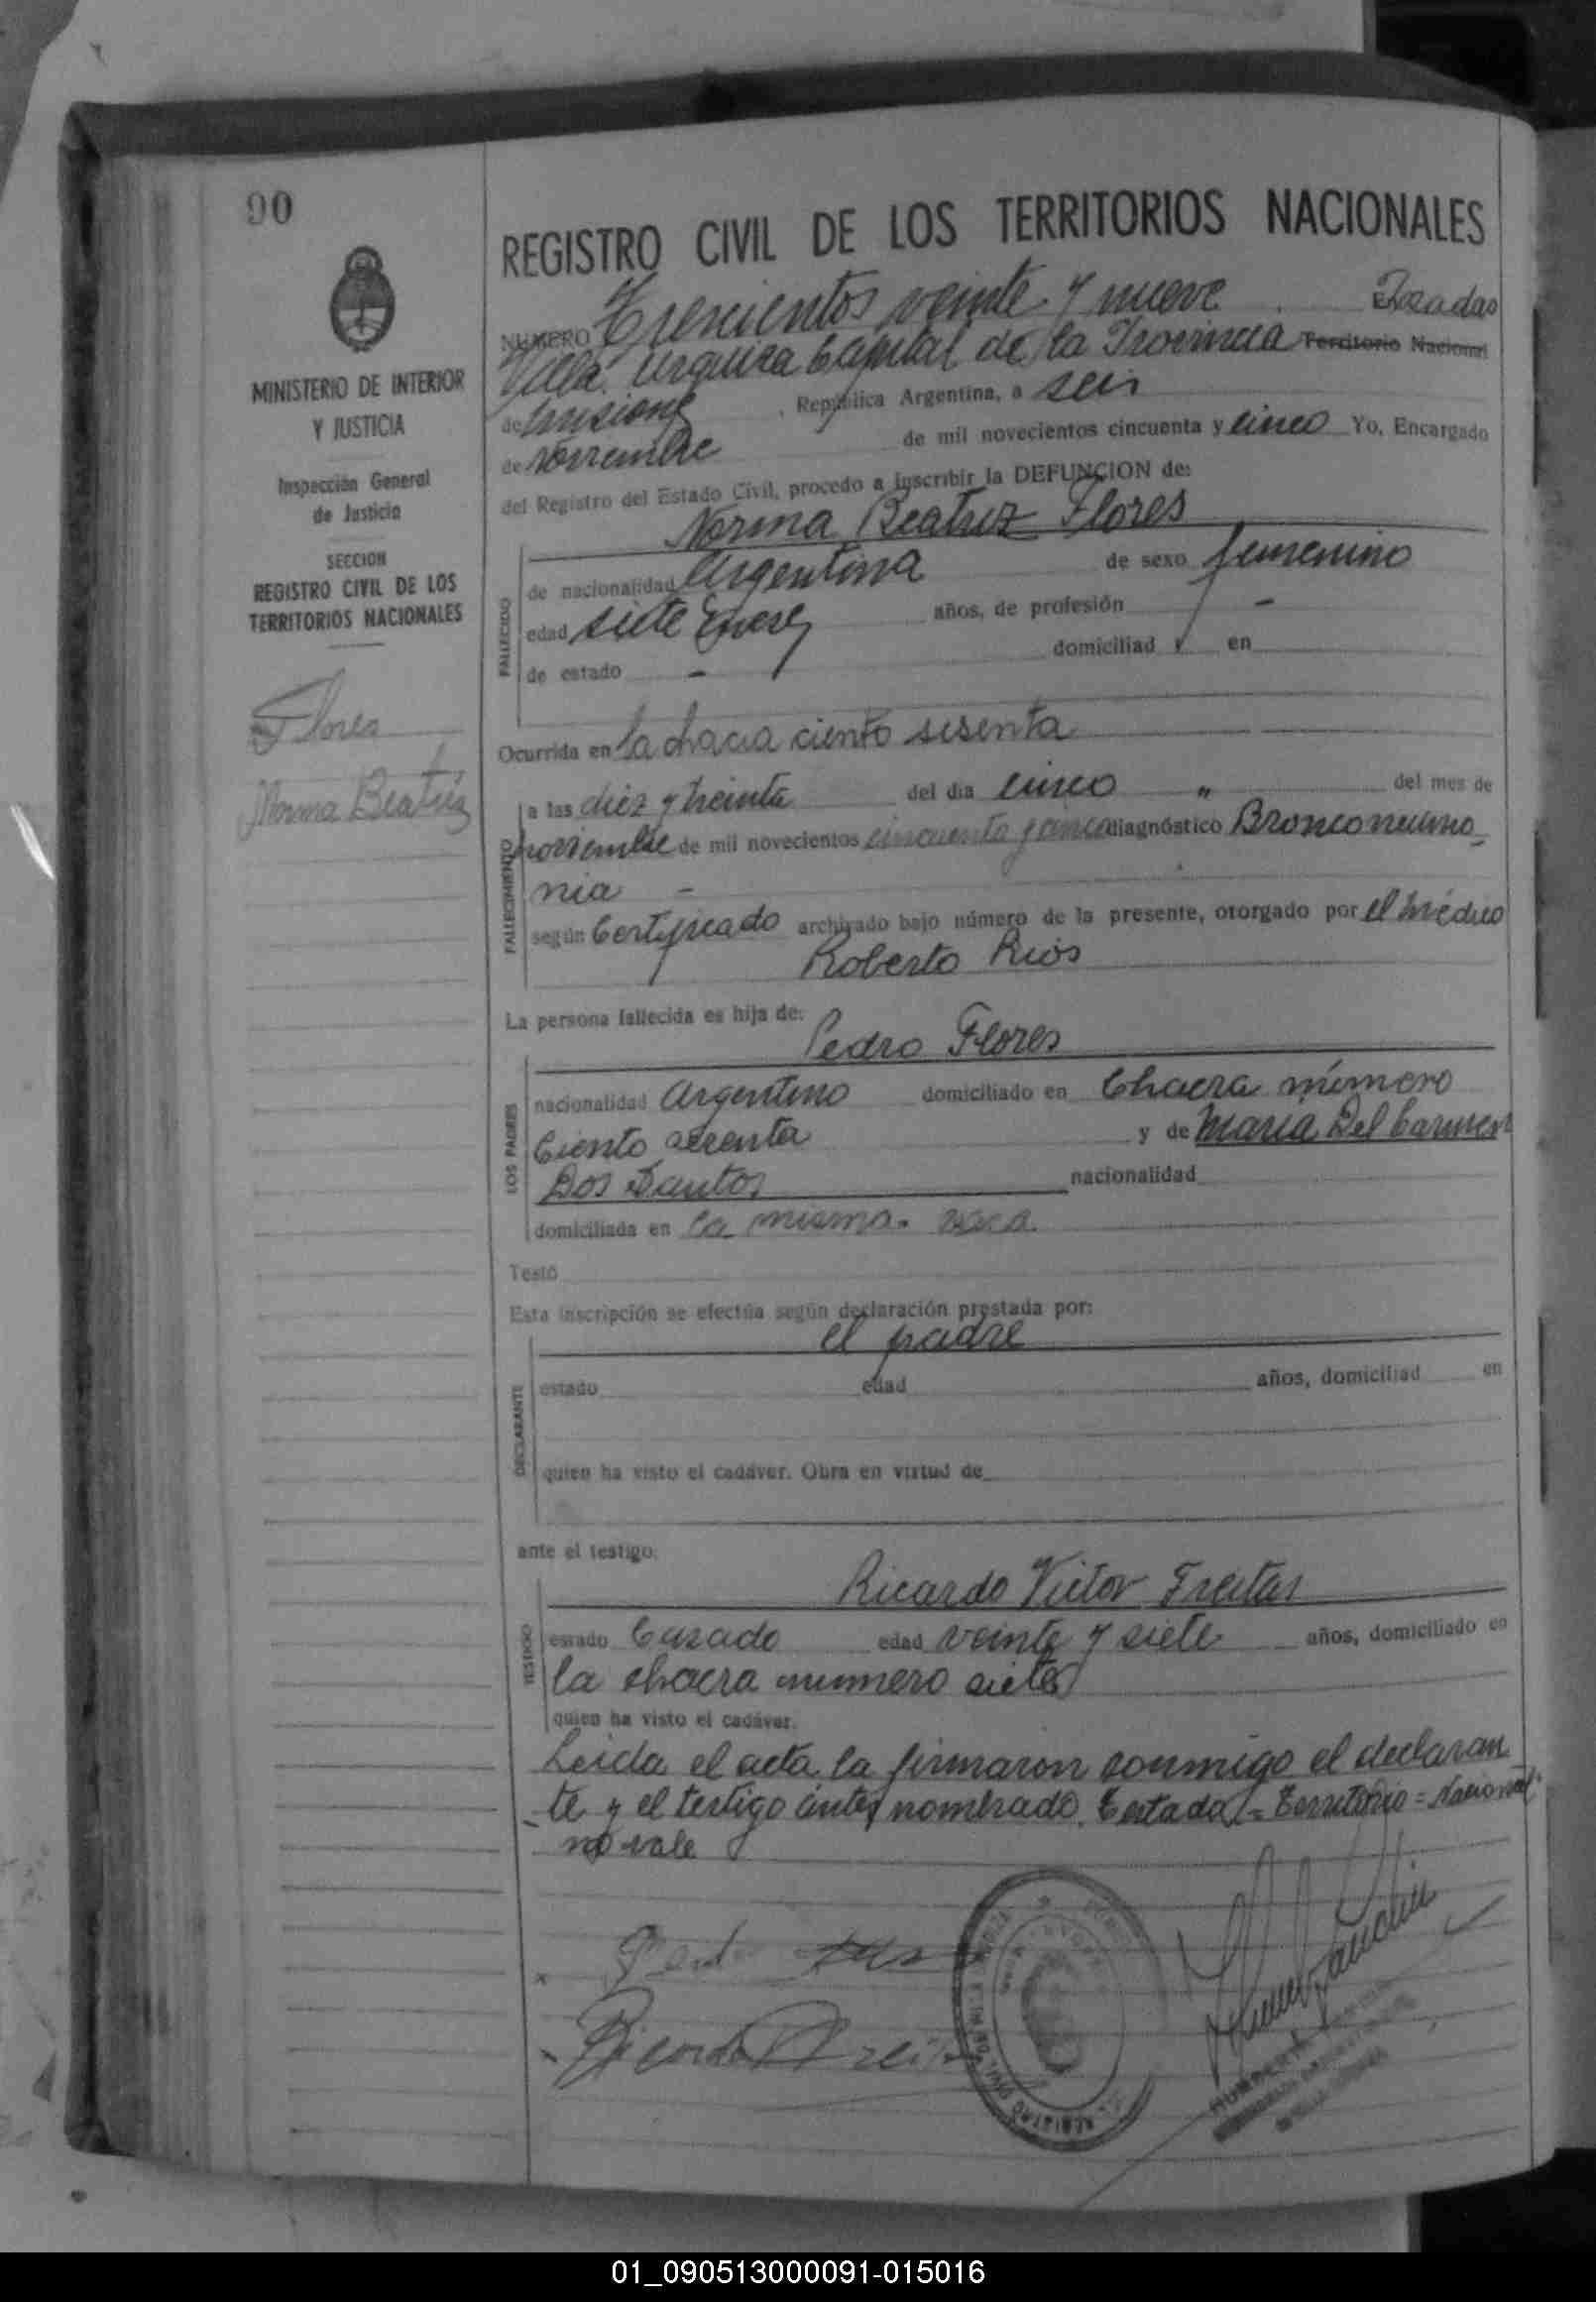 90
MINISTERIO DE INTERIOR
Y JUSTICIA
Inspección General
de Justicia
SECCION
REGISTRO CIVIL DE LOS
TERRITORIOS NACIONALES
Flores
Norma Beatriz
REGISTRO CIVIL DE LOS TERRITORIOS NACIONALES
NUMERO Trescientos veinte y nueve Posadas
Villa Urquiza Capital de la Provincia Territorio Nacional
de Misiones, República Argentina, a seis
de Noviembre de mil novecientos cincuenta y cinco Yo, Encargado
del Registro del Estado Civil, procedo a inscribir la DEFUNCION de:
Norma Beatriz Flores
FALLECIDO
de nacionalidad Argentina de sexo femenino
edad siete años, de profesión -
de estado - domiciliad en
Ocurrida en la chacra ciento sesenta
FALLECIMIENTO
a las diez y treinta del dia cinco " del mes de
noviembre de mil novecientos cincuenta y cinco diagnóstico Bronconeumo
nia -
según Certificado archivado bajo número de la presente, otorgado por el médico
Roberto Rios
La persona fallecida es hija de:
Pedro Flores
LOS PADRES
nacionalidad Argentino domiciliado en Chacra número
Ciento sesenta y de Maria Del Carmen
Dos Santos nacionalidad
domiciliada en la misma.
Testó
Esta inscripción se efectúa según declaración prestada por:
el padre
DECLARANTE
estado edad años, domiciliad en
quien ha visto el cadáver. Obra en virtud de
ante el testigo:
Ricardo Victor Freitas
TESTIGO
estado Casado edad veinte y siete años, domiciliado en
la chacra numero siete
quien ha visto el cadáver.
Leida el acta la firmaron conmigo el declaran
te y el testigo antes nombrado. Testado = Territorio = Nacional
no vale
01_090513000091-015016